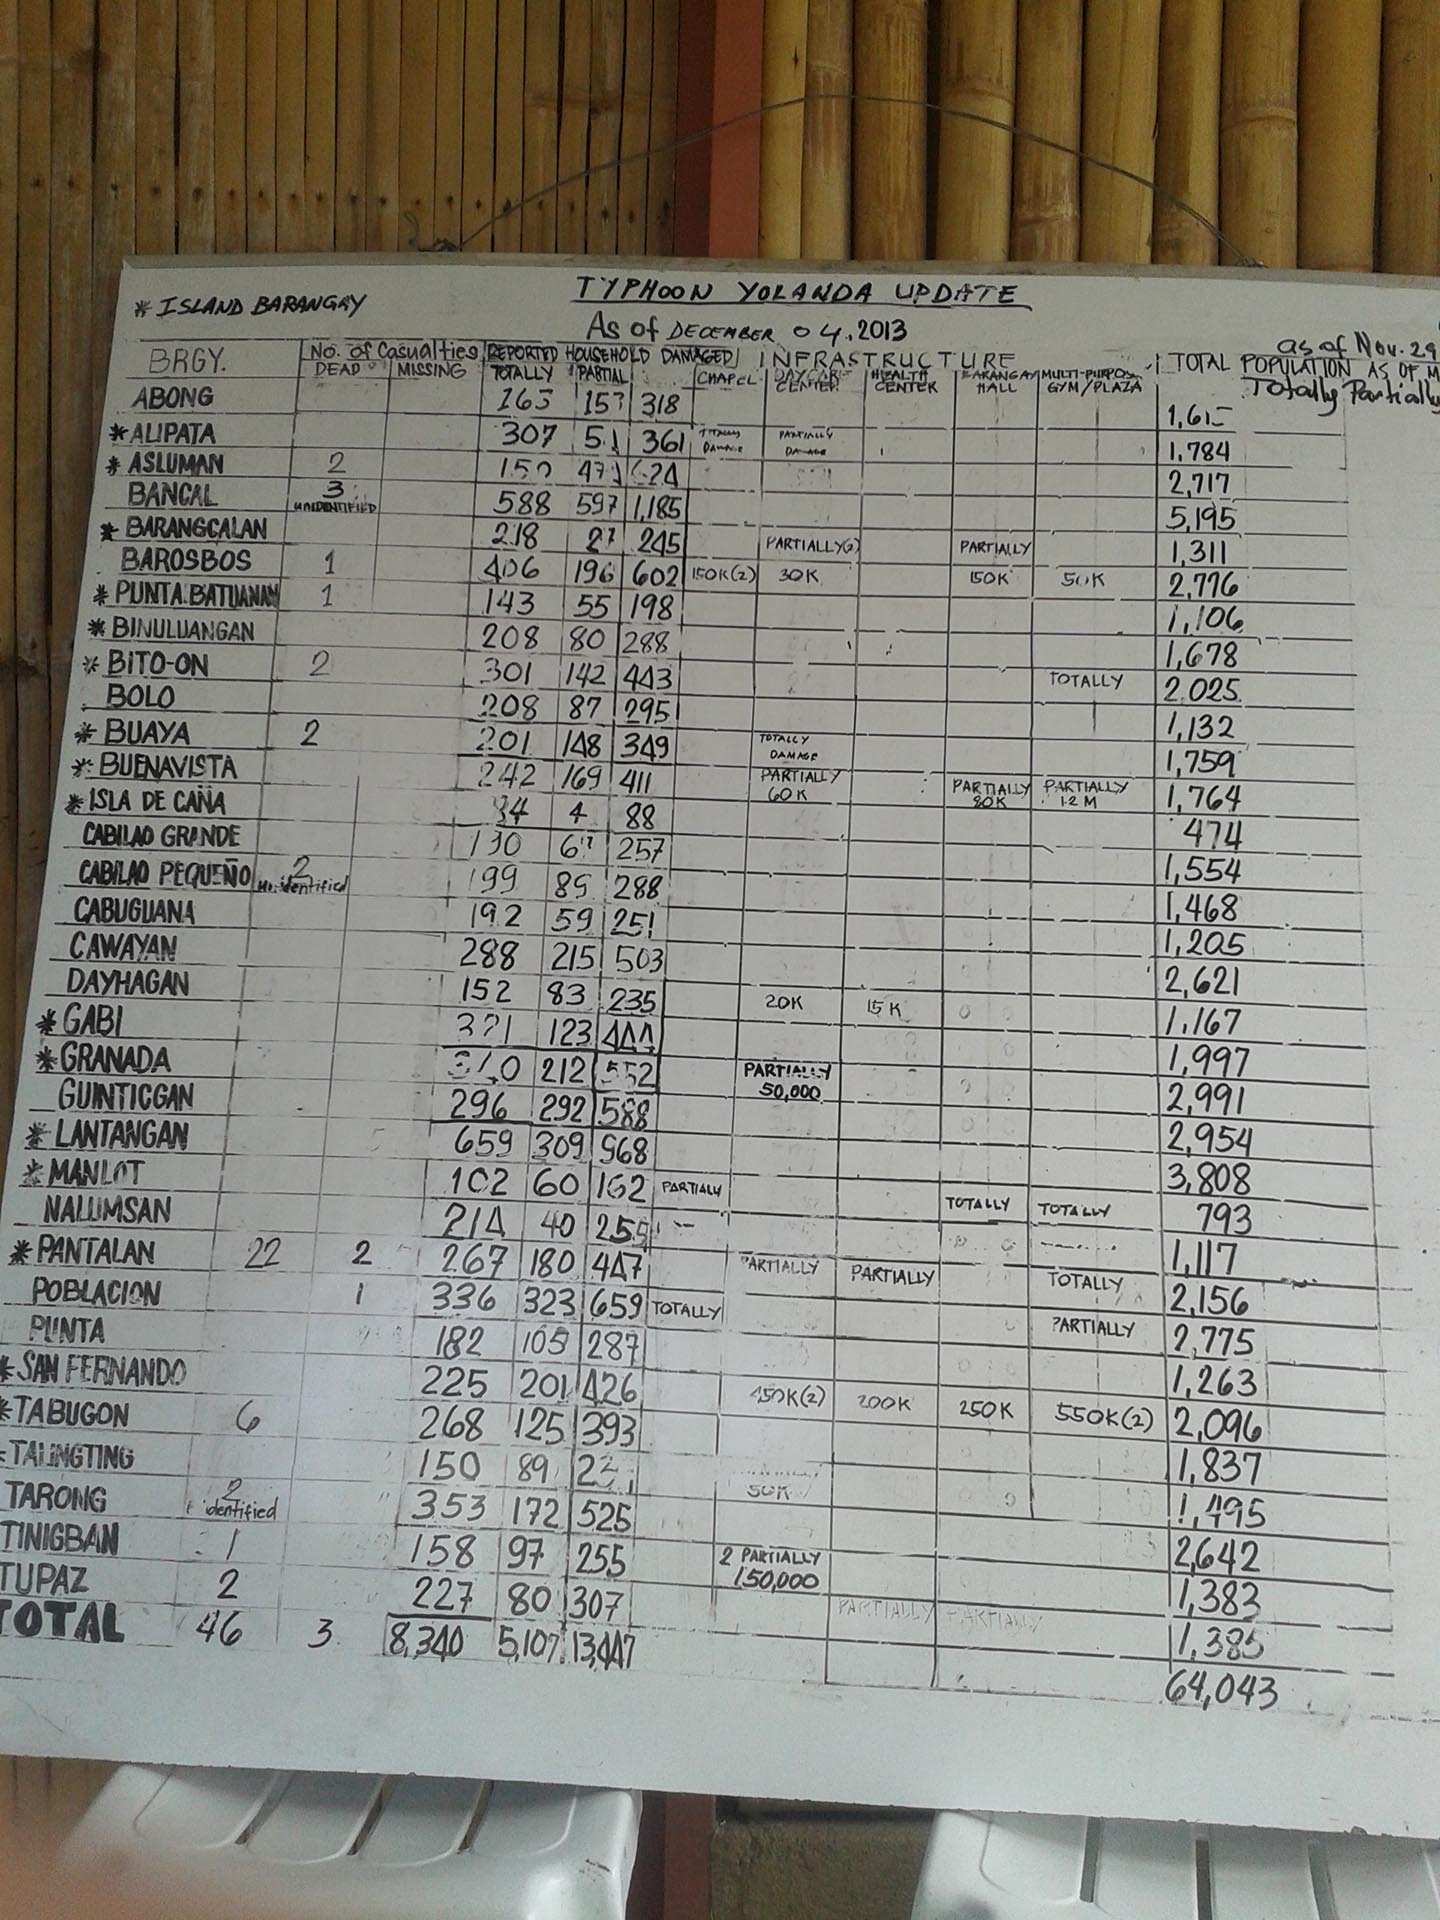 TYPHOON YOLANDA UPDATE
* ISLAND BARANGAY
As of DECEMBER 04, 2013
as of Nov. 29
BRGY. No. of Casualties REPORTED HOUSEHOLD DAMAGED INFRASTRUCTURE TOTAL POPULATION AS OF M
DEAD MISSING TOTALLY PARTIAL CHAPEL DAYCARE CENTER HEALTH CENTER BARANGAY HALL MULTI-PURPOS GYM/PLAZA Totally Partially
ABONG 318
* ALIPATA 307 361 TOTALLY DAMAGE PARTIALLY DAMAGE 1,784
* ASLUMAN 2 2,717
BANCAL 3 UNIDENTIFIED 588 597 1,185 5,195
* BARANGCALAN 218 27 245 PARTIALLY(2) PARTIALLY 1,311
BAROSBOS 1 406 196 602 150K(2) 30K 150K 50K 2,776
* PUNTA BATUANAN 1 143 55 198 1,106
* BINULUANGAN 208 80 288 1,678
* BITO-ON 2 301 142 443 TOTALLY 2.025
BOLO 208 87 295 1,132
* BUAYA 2 201 148 349 TOTALLY DAMAGE 1,759
* BUENAVISTA 242 169 411 PARTIALLY 60K PARTIALLY 80K PARTIALLY 1.2 M 1,764
* ISLA DE CAÑA 4 88 474
CABILAO GRANDE 257 1,554
CABILAO PEQUEÑO 2 unidentified 199 89 288 1,468
CABUGUANA 192 59 251 1,205
CAWAYAN 288 215 503 2,621
DAYHAGAN 152 83 235 20K 15K 1,167
* GABI 321 123 444 1,997
* GRANADA 340 212 552 PARTIALLY 50,000 2,991
GUINTICGAN 296 292 588 2,954
* LANTANGAN 659 309 968 3,808
* MANLOT 102 60 162 PARTIALLY TOTALLY TOTALLY 793
NALUMSAN 214 40 254 1,117
* PANTALAN 22 2 267 180 447 PARTIALLY PARTIALLY TOTALLY 2,156
POBLACION 1 336 323 659 TOTALLY PARTIALLY 2,775
PUNTA 182 105 287 1,263
* SAN FERNANDO 225 201 426 450K(2) 200K 250K 550K(2) 2,096
* TABUGON 6 268 125 393 1,837
* TALINGTING 150 89 50K 1,495
TARONG 2 identified 353 172 525 2,642
TINIGBAN 1 158 97 255 2 PARTIALLY 150,000 1,383
TUPAZ 2 227 80 307 PARTIALLY PARTIALLY 1,385
TOTAL 46 3 8,340 5,107 13,447 64,043